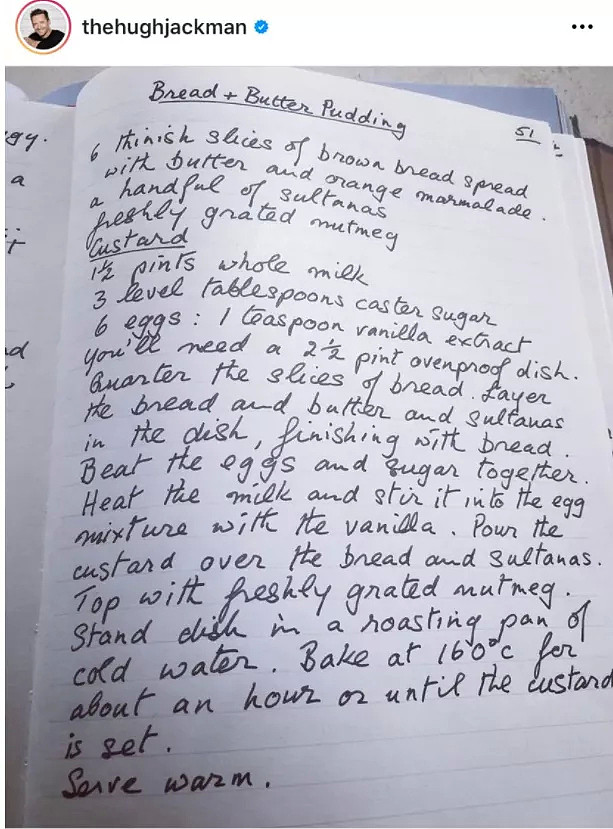 thehughjackman
Bread + Butter Pudding
51
6 thinish slices of brown bread spread
with butter and orange marmalade.
a handful of sultanas
freshly grated nutmeg
Custard
1½ pints whole milk
3 level tablespoons caster sugar
6 eggs : 1 teaspoon vanilla extract
you'll need a 2½ pint ovenproof dish.
Quarter the slices of bread. Layer
the bread and butter and sultanas
in the dish, finishing with bread.
Beat the eggs and sugar together.
Heat the milk and stir it into the egg
mixture with the vanilla. Pour the
custard over the bread and sultanas.
Top with freshly grated nutmeg.
Stand dish in a roasting pan of
cold water. Bake at 160°c for
about an hour or until the custard
is set.
Serve warm.